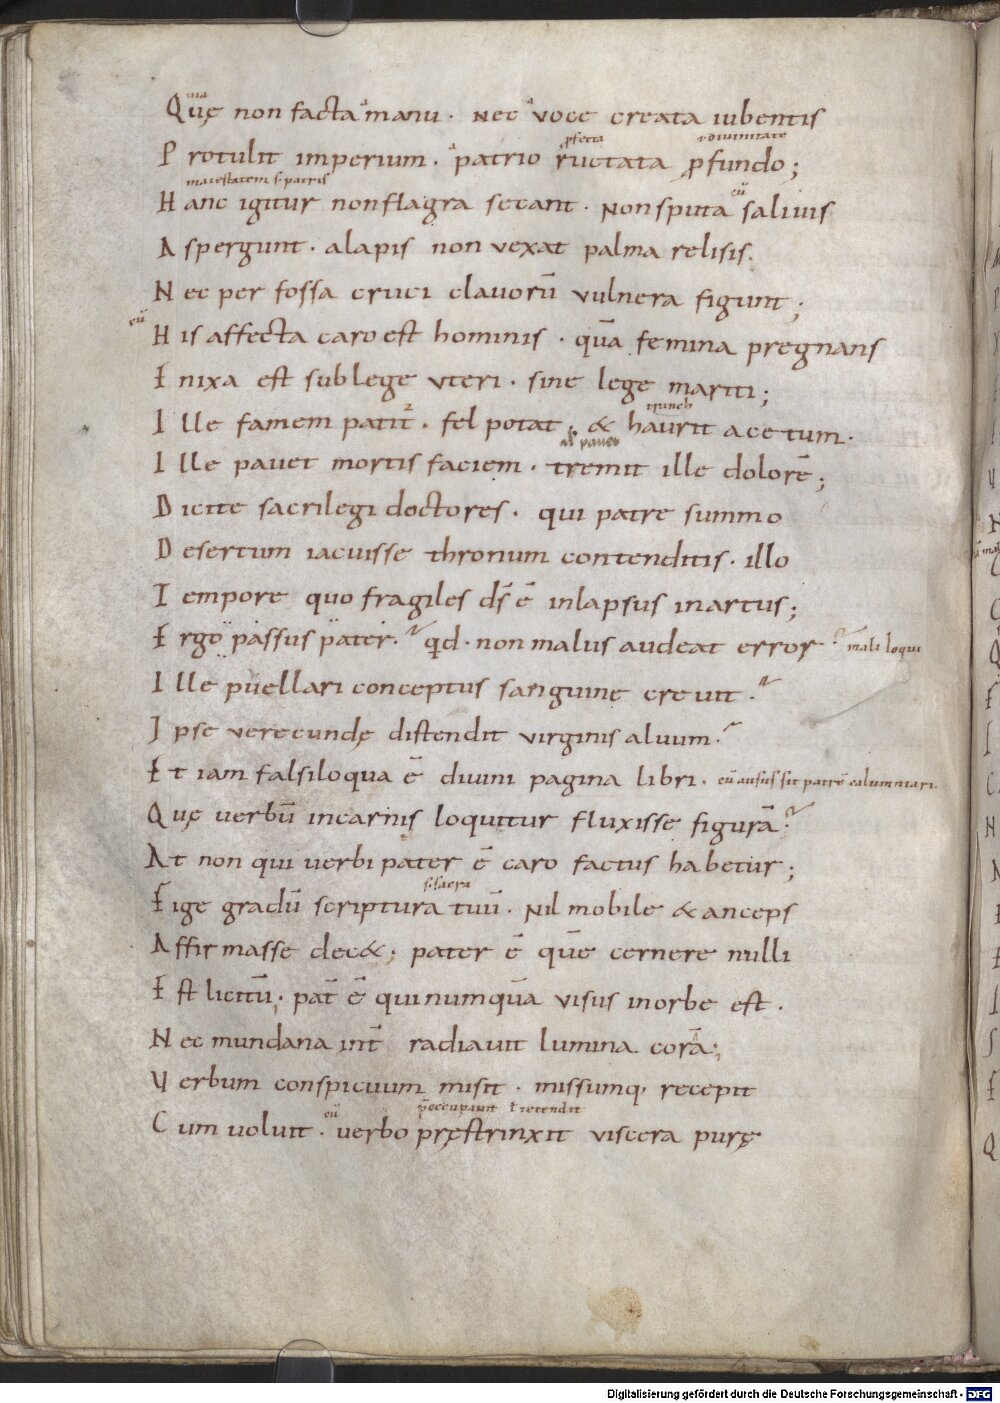 uia
Quę non facta manu · Nec voce creata iubentis
pfecta · diuinitate
Protulit imperium · patrio ructata pfundo;
maiestatem s· patris eū
Hanc igitur non flagra secant · Non sputa saliuis
Aspergunt · alapis non vexat palma relisis.
Nec per fossa cruci clauorū vulnera figunt;
eū
His affecta caro est hominis · quā femina pregnans
Enixa est sub lege vteri · sine lege mariti;
Ille famem patit · fel potat · & haurit acetum·
al paueo
Ille pauet mortis faciem · tremit ille dolorē;
Dicite sacrilegi doctores · qui patre summo
Desertum iacuisse thronum contenditis · illo
Tempore quo fragiles ds̄ ē inlapsus in artus;
Ergo passus pater· qd· non malus audeat error· mali loqui
Ille puellari conceptus sanguine creuit·
Ipse verecundę distendit virginis aluum·
Et iam falsiloqua ē diuini pagina libri · eū ausus sit patrē calumniari·
Quę uerbū in carnis loquitur fluxisse figurā·
At non qui uerbi pater ē caro factus habetur;
s· sacra
Fige gradū scriptura tuū · Nil mobile & anceps
Affirmasse dec&; pater ē quē cernere nulli
Est licitū; pat̄ ē qui numquā visus in orbe est ·
Nec mundana int̄ radiauit lumina corā;
Verbum conspicuum misit · missumq; recepit
eū p̄occupauit ł retendit
Cum uoluit · uerbo pręstrinxit viscera purę
Digitalisierung gefördert durch die Deutsche Forschungsgemeinschaft - DFG